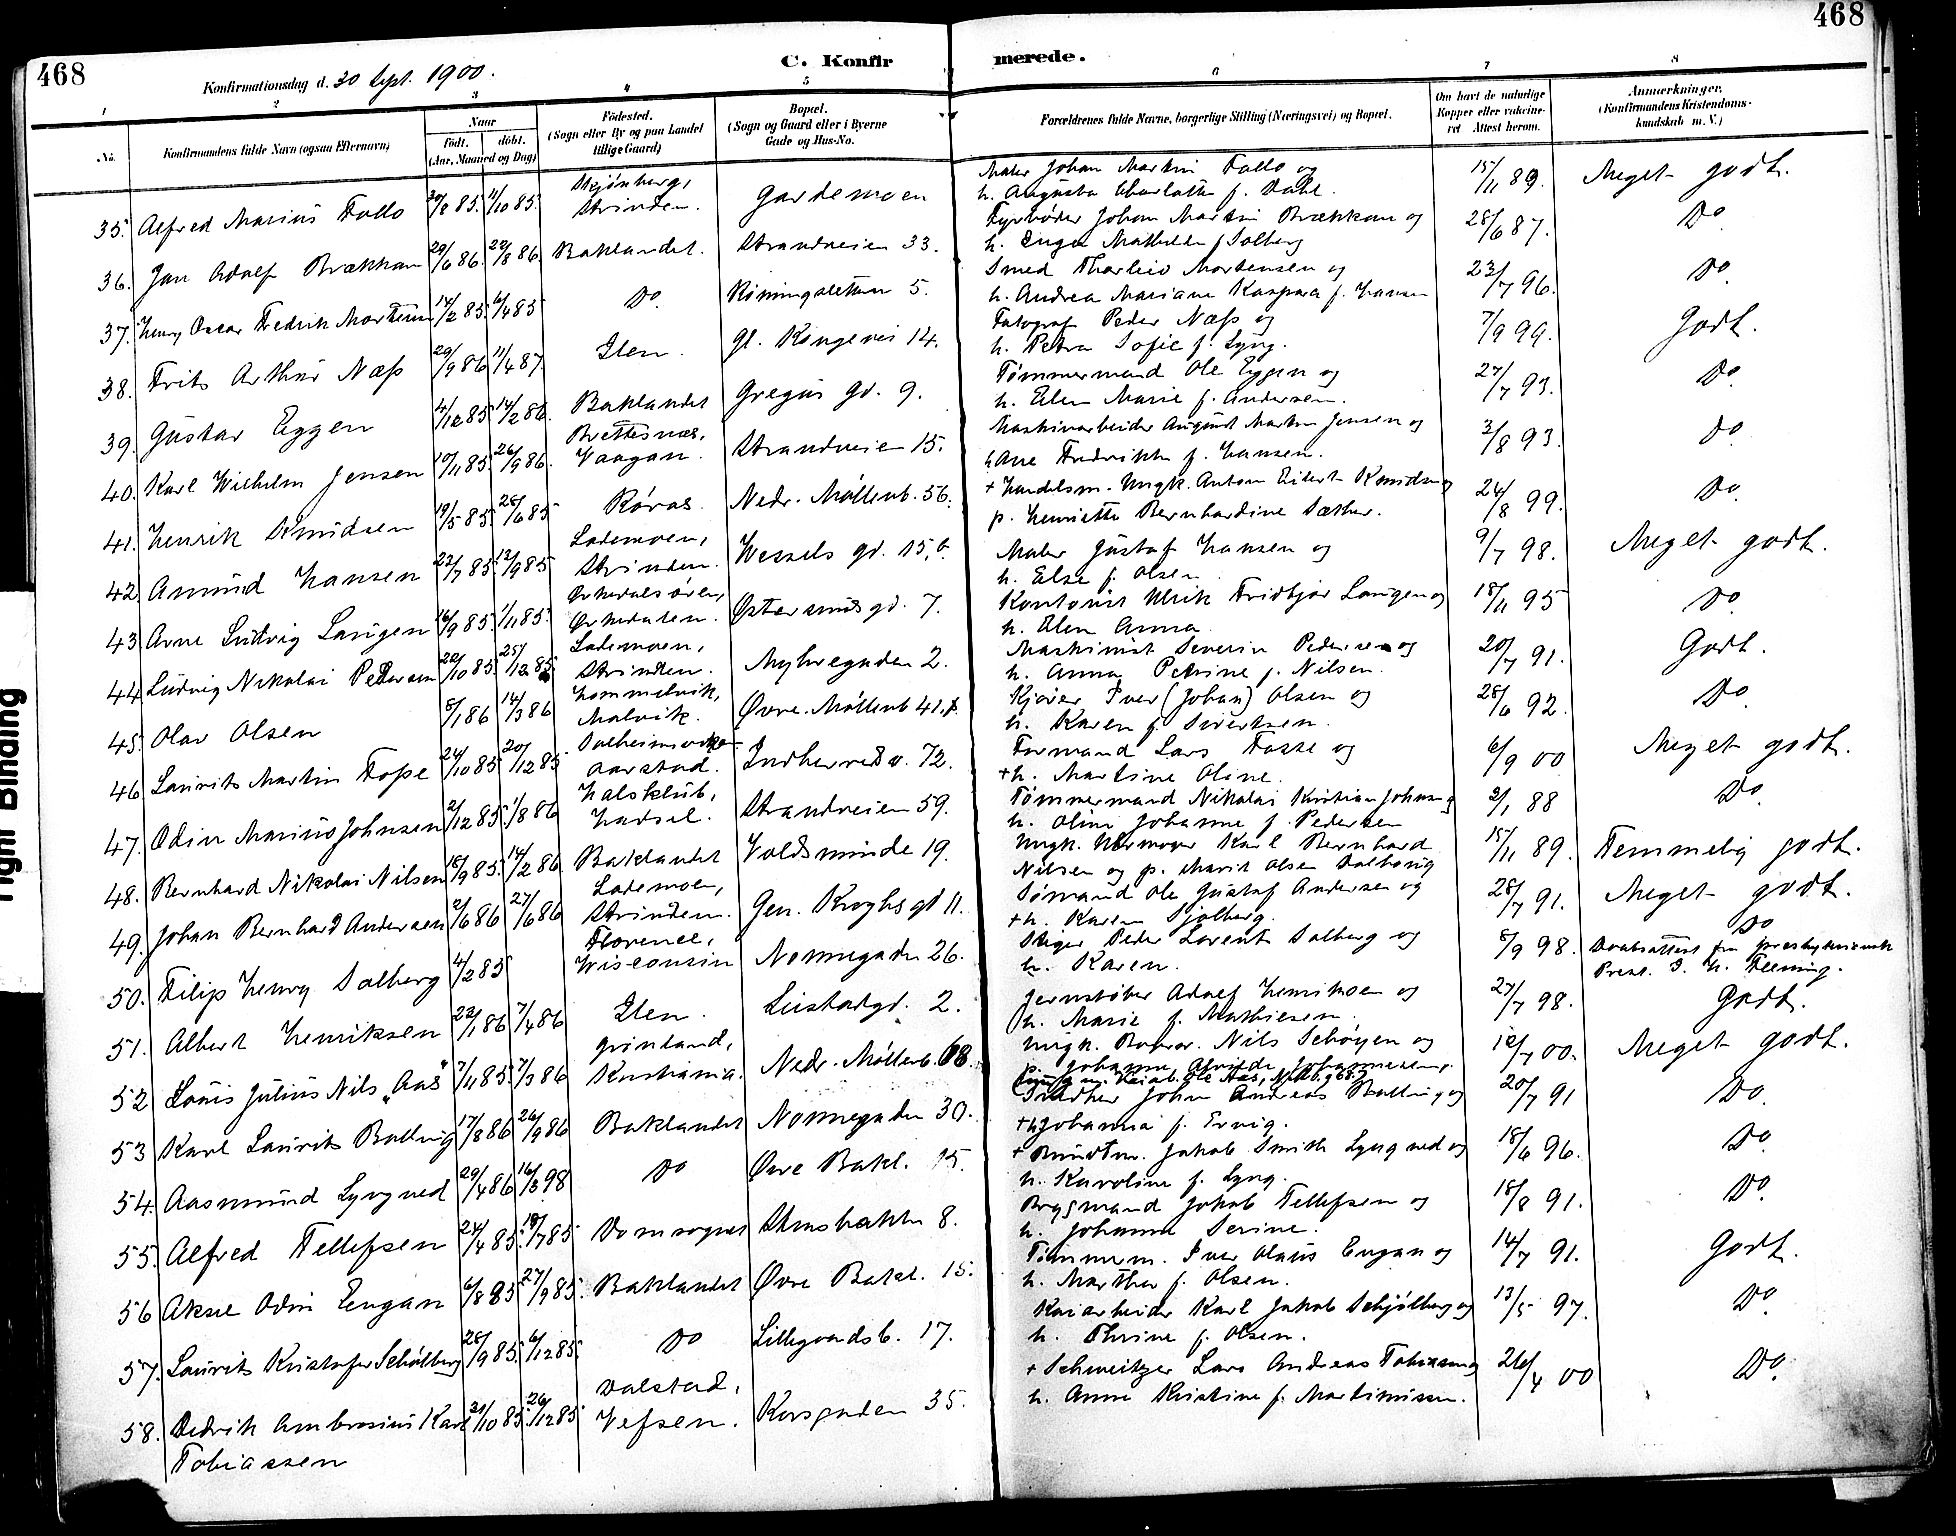 468
Konfirmationsdag d. 30 Sept. 1900.
C. Konfir
merede.
468
1 2 3 4 5 6 7 8
No.
Konfirmandens fulde Navn (ogsaa Efternavn)
Naar
født. døbt.
(Aar, Maaned og Dag)
Fødested.
(Sogn eller By og paa Landet
tillige Gaard)
Bopæl.
(Sogn og Gaard eller i Byerne
Gade og Hus-No.
Forældrenes fulde Navne, borgerlige Stilling (Næringsvei) og Bopæl.
Om havt de naturlige
Kopper eller vaccine-
ret Attest herom.
Anmærkninger.
(Konfirmandens Kristendoms-
kundskab m. V.)
35. Alfred Marius Follo 30/8 85. 11/10 85. Strinden. Gardemoen Maler Johan Martin Follo og h. Augusta Charlotte f. Dahl. 15/11 89. Meget godt.
36. Jan Adolf Brækkan 29/6 86. 22/8 86. Baklandet. Strandveien 33. Fyrbøder Johan Martin Brækkan og h. Inga Mathilde f. Solberg 28/6 87. Do
37. Henry Oscar Fredrik Mortensen 14/2 85. 6/4 85 Do. Rønningsletten 5. Smed Thorleiv Mortensen og h. Andrea Mariane Kaspara f. Hansen 23/7 96. Do
38. Frits Arthur Næss 29/9 86 11/4 87. Ilen. Gl. Kongevei 14. Fotograf Peder Næss og h. Petra Sofie f. Lyng. 7/9 99. Godt.
39. Gustav Eggen 4/12 85 14/2 86. Baklandet Gregus gd. 9. Tømmermand Ole Eggen og h. Elen Marie f. Andersen. 27/7 93. Do
40. Karl Wilhelm Jensen 10/11 85. 26/9 86. Brettesnæs, Vaagan. Strandveien 15. Maskinarbeider August Martin Jensen og h. Ane Fredrikke f. Hansen. 3/8 93. Do
41. Henrik Knudsen 19/5 85. 28/6 85 Røros. Nedr. Møllenb. 56. + Handelsm. Ungk. Anton Eilert Knudsen og p. Henriette Bernhardine Sæther. 24/8 99. Do.
42. Amund Hansen 22/7 85. 13/9 85 Lademoen, Strinden. Wessels gd. 15,b. Maler Gustaf Hansen og h. Else f. Olsen. 9/7 98. Meget godt.
43 Arne Ludvig Langen 16/9 85. 1/11 85. Orkedalsøren, Orkedalen. Østersunds gd. 7. Kontorist Ulrik Fridtjov Langen og h. Elen Anna. 18/11 95 Do.
44. Ludvig Nikolai Pedersen 22/10 85. 25/12 85 Lademoen, Strinden. Nyhregaden 2. Maskinist Severin Pedersen og h. Anna Petrine f. Nilsen. 20/7 91. Godt.
45. Olav Olsen 8/1 86 14/3 86 Hommelvik, Malvik. Øvre. Møllenb 41. Kjører Iver (Johan) Olsen og h. Karen f. Sivertsen. 28/6 92. Do
46. Laurits Martin Fosse 24/10 85. 20/12 85 Aarstad. Indherredsv. 72. Formand Lars Fosse og +h. Martine Oline. 6/9 00 Meget godt.
47. Odin Marius Johnsen 2/12 85. 1/8 86 Halsklub, Hadsel. Strandveien 59. Tømmermand Nikolai Kristian Johnsen og h. Oline Johanne f. Pedersen 3/1 88 Do.
48. Bernhard Nikolai Nilsen 18/9 85. 14/2 86 Baklandet Voldsminde 19. Ungk. Karl Bernhard Nilsen og p. Marit Olsen 15/11 89. Temmelig godt.
49. Johan Bernhard Andersen 2/6 86 27/6 86 Lademoen, Strinden. Gen. Kroghs gd 11. Sømand Ole Gustaf Andersen og +h. Karen Sjølberg. 28/7 91. Meget godt.
50. Filip Henry Solberg 4/2 85 Florence, Wisconsin Nonnegaden 26. Skiger Peder Lorents Solberg og h. Karen. 8/9 98. Do Daabsattest fra presbyteriansk Prest. Fleming.
51. Albert Henriksen 22/1 86 7/4 86 Ilen. Liistadgd. 2. Jernstøber Adolf Henriksen og h. Marie f. Mathiesen. 27/7 98. Godt.
52 Louis Julius Nils „Aas" 7/11 85. 7/3 86 Grønland, Kristiania. Nedr. Møllenb. 68. Ungk. Nils Schøyen og p. Johanne Alvilde Johannesen, 12/7 00. Meget godt.
53 Karl Laurits Balling 17/8 86 26/9 86 Baklandet Nonnegaden 30. Snedker Johan Andreas Balling og +h. Johanna f. Ervig. 20/7 91 Do.
54. Aasmund Lyngved 29/4 86 16/3 98 Do Øvre Bakl. 15. + Jakob Smith Lyngved og h. Karoline f. Lyng. 18/6 96. Do
55. Alfred Tellefsen 24/4 85. 19/7 85 Domsognet Stensbakken 8. Brygmand Jakob Tellefsen og h. Johanna Serine. 18/8 91. Do.
56 Aksel Odin Engan 6/8 85 27/9 85 Baklandet Øvre Bakl. 15. Tømmerm. Iver Olaus Engan og h. Marthe f. Olsen. 14/7 91. Godt.
57. Laurits Kristofer Schjølberg 28/9 85. 6/12 85 Do Lillegaardsb. 17. Kaiarbeider Karl Jakob Schjølberg og h. Thrine f. Olsen. 13/5 97. Do.
58. Didrik Ambrosius Karl Tobiassen 31/10 85. 26/12 85 Dalstad, Vefsen. Korsgaden 35. + Schweitzer Lars Andreas Tobiassen og h. Anne Kristine f. Martinussen. 26/4 00 Do.
Tight Binding